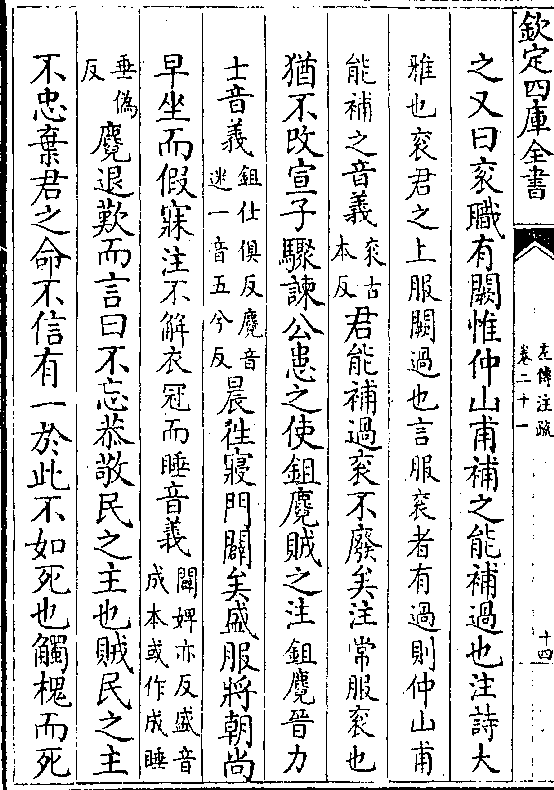 欽定四庫全書
左傳注疏
卷二十一
十四
之又曰衮職有闕惟仲山甫補之能補過也注詩大
雅也衮君之上服闕過也言服衮者有過則仲山甫
能補之音義衮古本反君能補過衮不廢矣注常服衮也
猶不改宣子驟諫公患之使鉏麑賊之注鉏麑晉力
士音義鉏仕俱反麑音迷一音五兮反晨徃寢門闢矣盛服將朝尚
早坐而假寐注不解衣冠而睡音義闢婢亦反盛音成本或作成睡
垂偽反麑退歎而言曰不忘恭敬民之主也賊民之主
不忠棄君之命不信有一於此不如死也觸槐而死